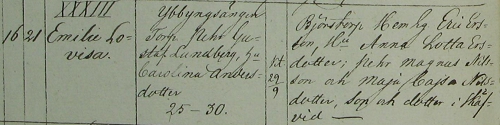 XXXIII
16 21 Emilie Lo-
visa.
Ybbyngsängen
Torp Jehr Gu-
staf Lundberg, Hu
Carolina Anders-
dotter
25-30.
kt
29
9
Björnstorp Hem Eg Eric Ers-
son, Hu Anna Lotta Ers-
dotter; Pehr Magnus Nils-
son och Maja Cajsa Nils-
dotter, son och dotter i
vid